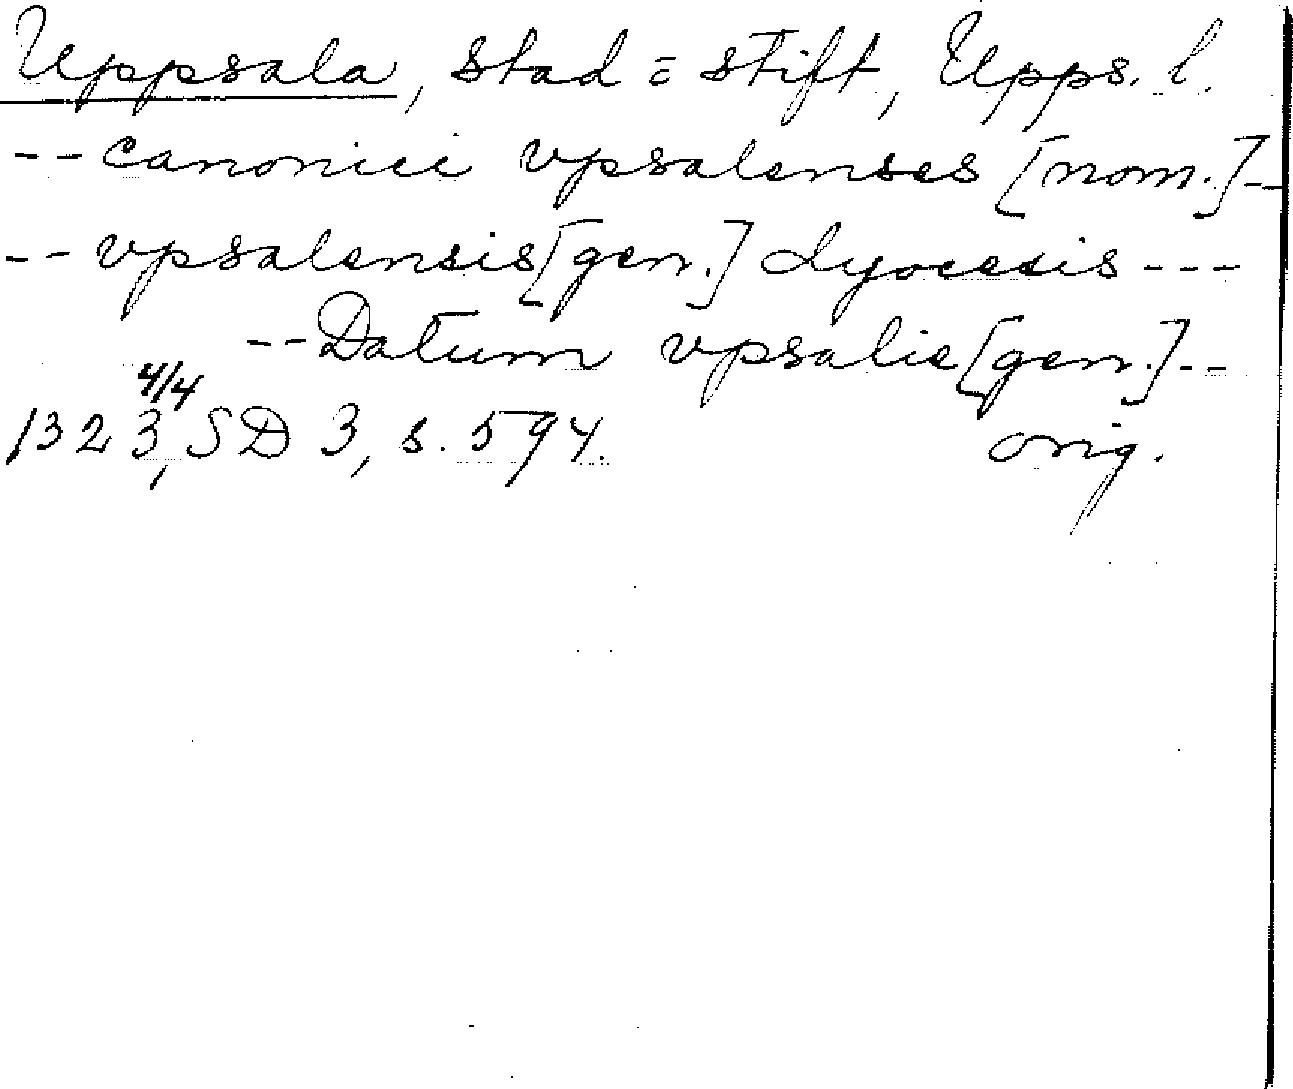 Uppsala, stad = stift, Upps. l.
-- canonici vpsalenses [nom.]--
-- vpsalensis [gen.] dyocesis ---
-- Datum vpsalie [gen.]--
1323 4/4, SD 3, s. 594. orig.